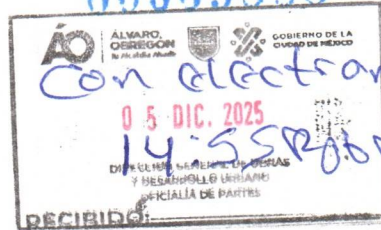 ÁLVARO OBREGÓN
Tu Alcaldía Aliada
GOBIERNO DE LA CIUDAD DE MÉXICO
Con electrar
05 DIC. 2025
14:55
DIRECCIÓN GENERAL DE OBRAS
Y DESARROLLO URBANO
OFICIALÍA DE PARTES
RECIBIDO: